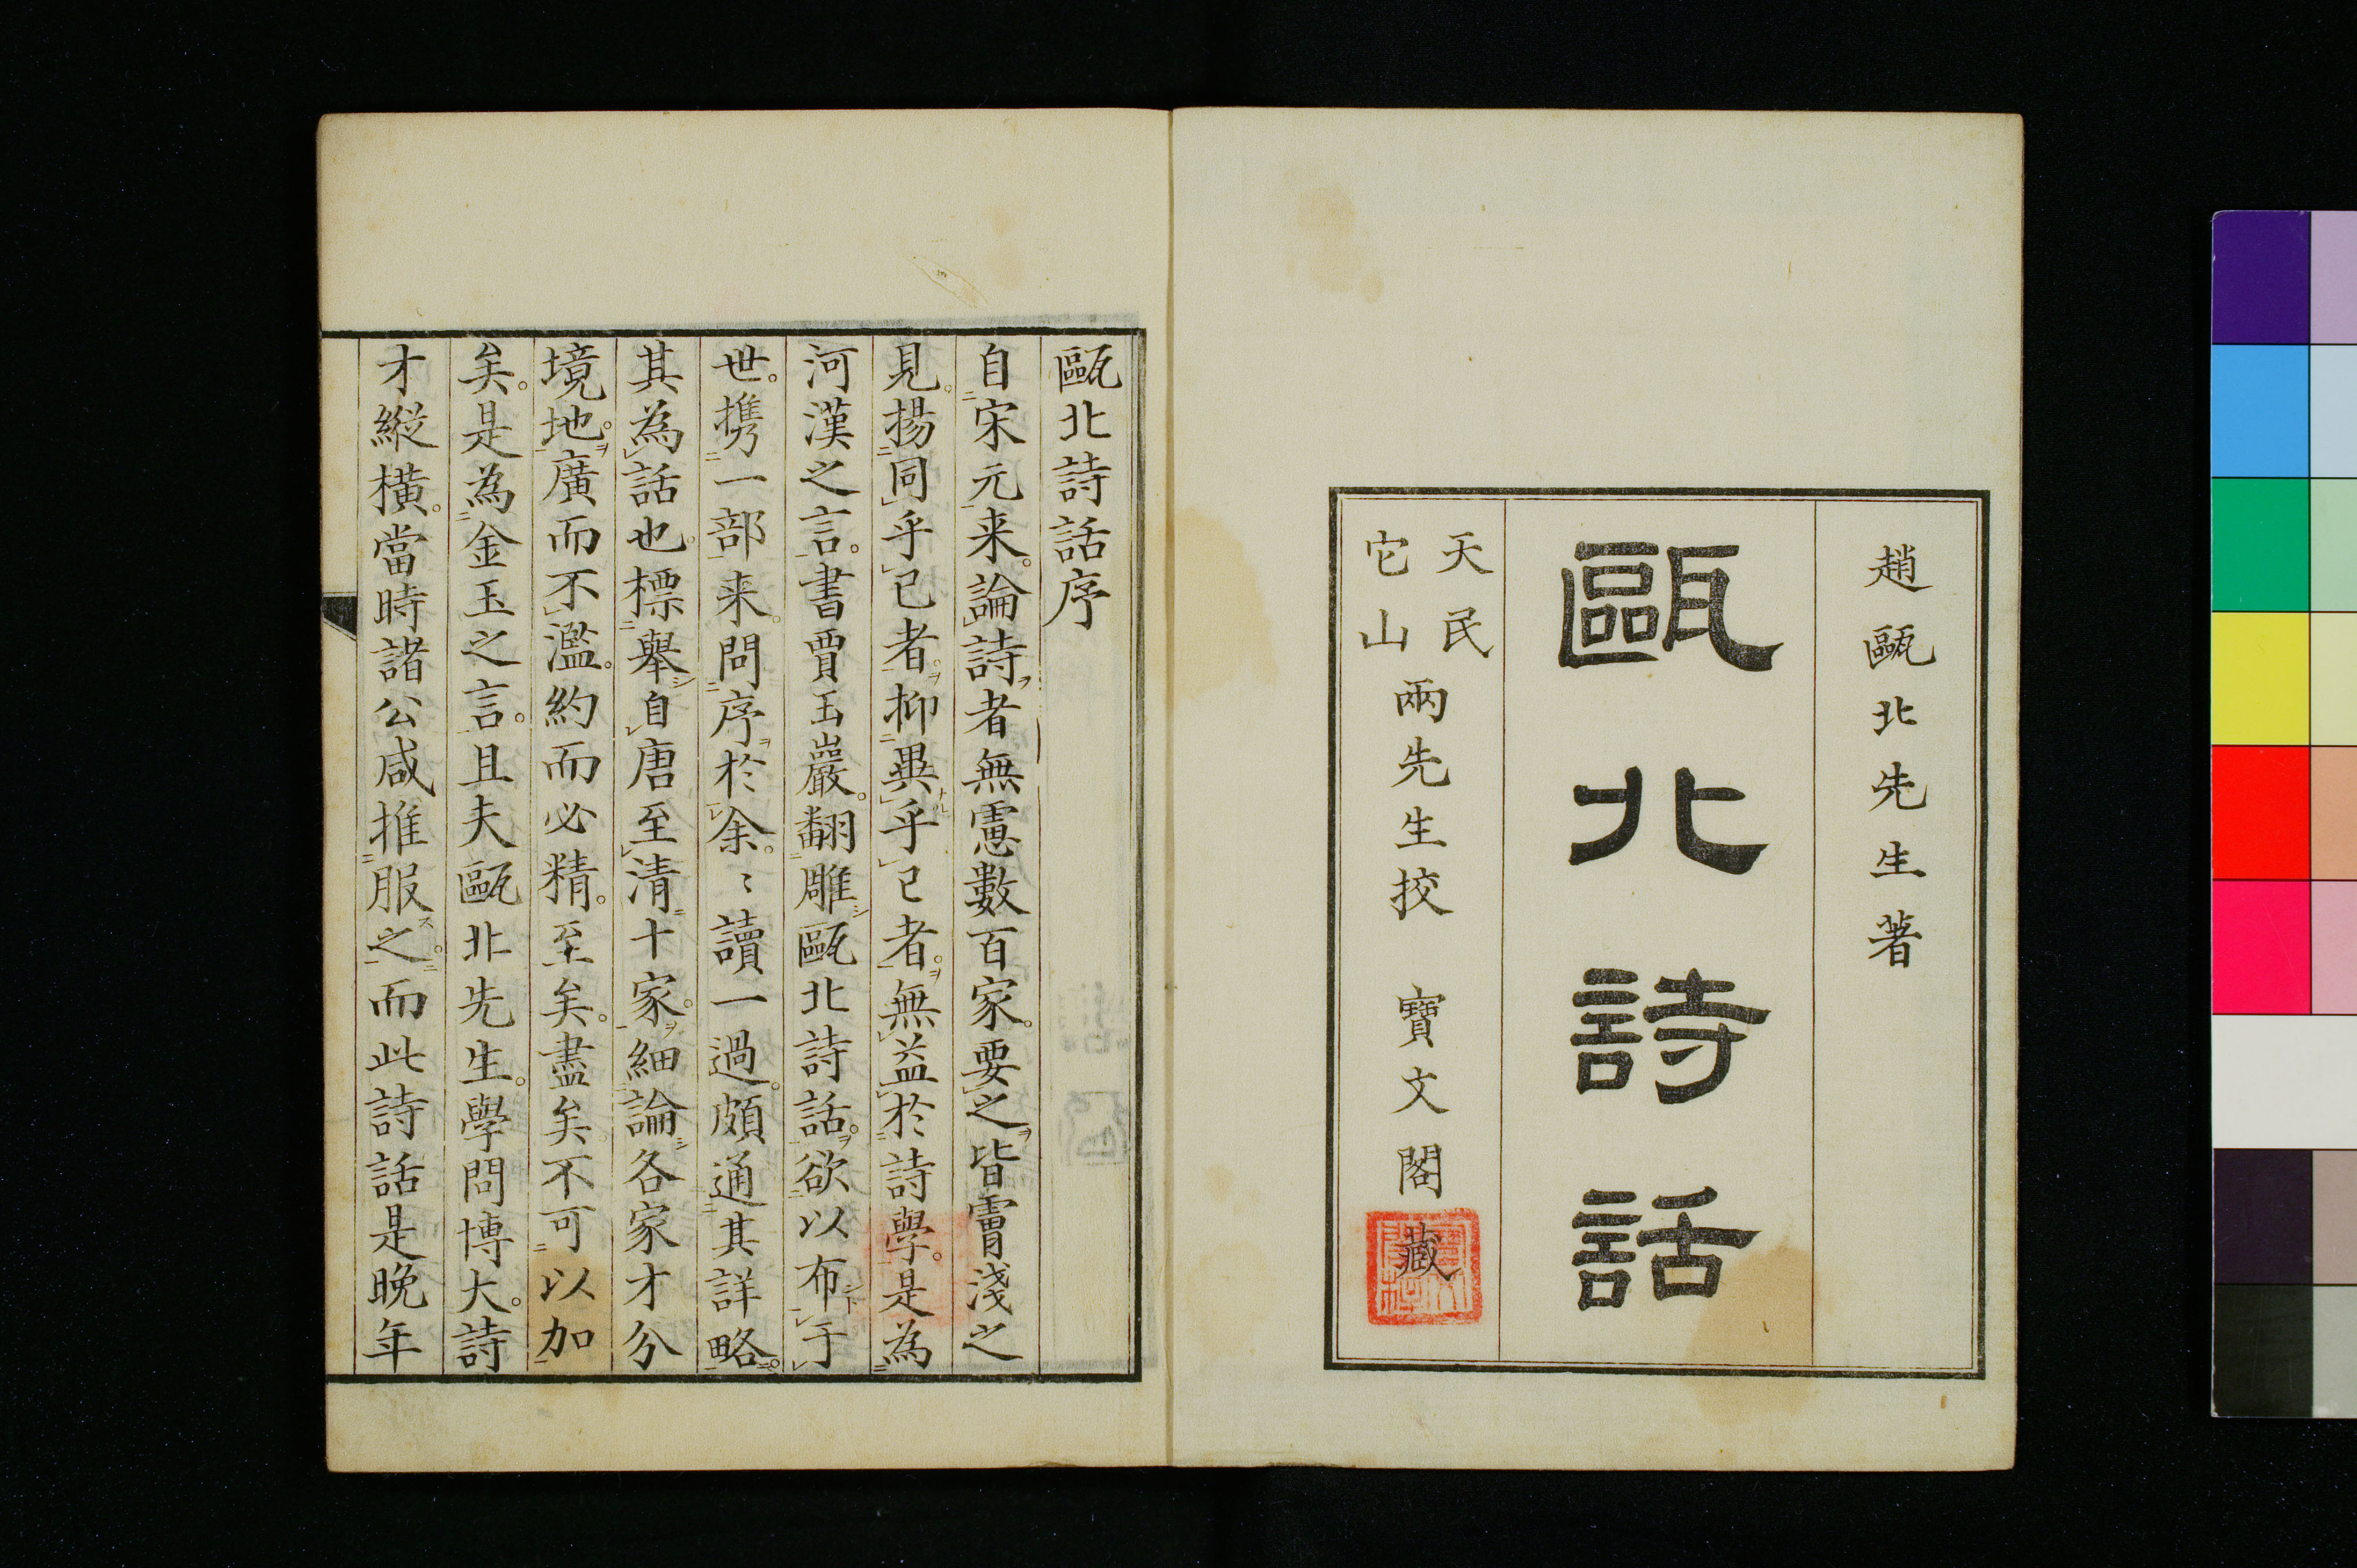 趙甌北先生著
甌北詩話
天民
它山
兩先生挍 寶文閣藏
甌北詩話序
自宋元来。論詩者無慮數百家。要之皆膚淺之
見。揚同乎已者。抑異乎已者。無益於詩學。是為
河漢之言。書賈玉巖。翻雕甌北詩話。欲以布于
世。携一部来。問序於余。〻讀一過。頗通其詳略。
其為話也。標舉自唐至清十家。細論各家才分
境地。廣而不濫。約而必精。至矣。盡矣。不可以加
矣。是為金玉之言。且夫甌北先生。學問博大。詩
才縱橫。當時諸公咸推服之。而此詩話是晚年